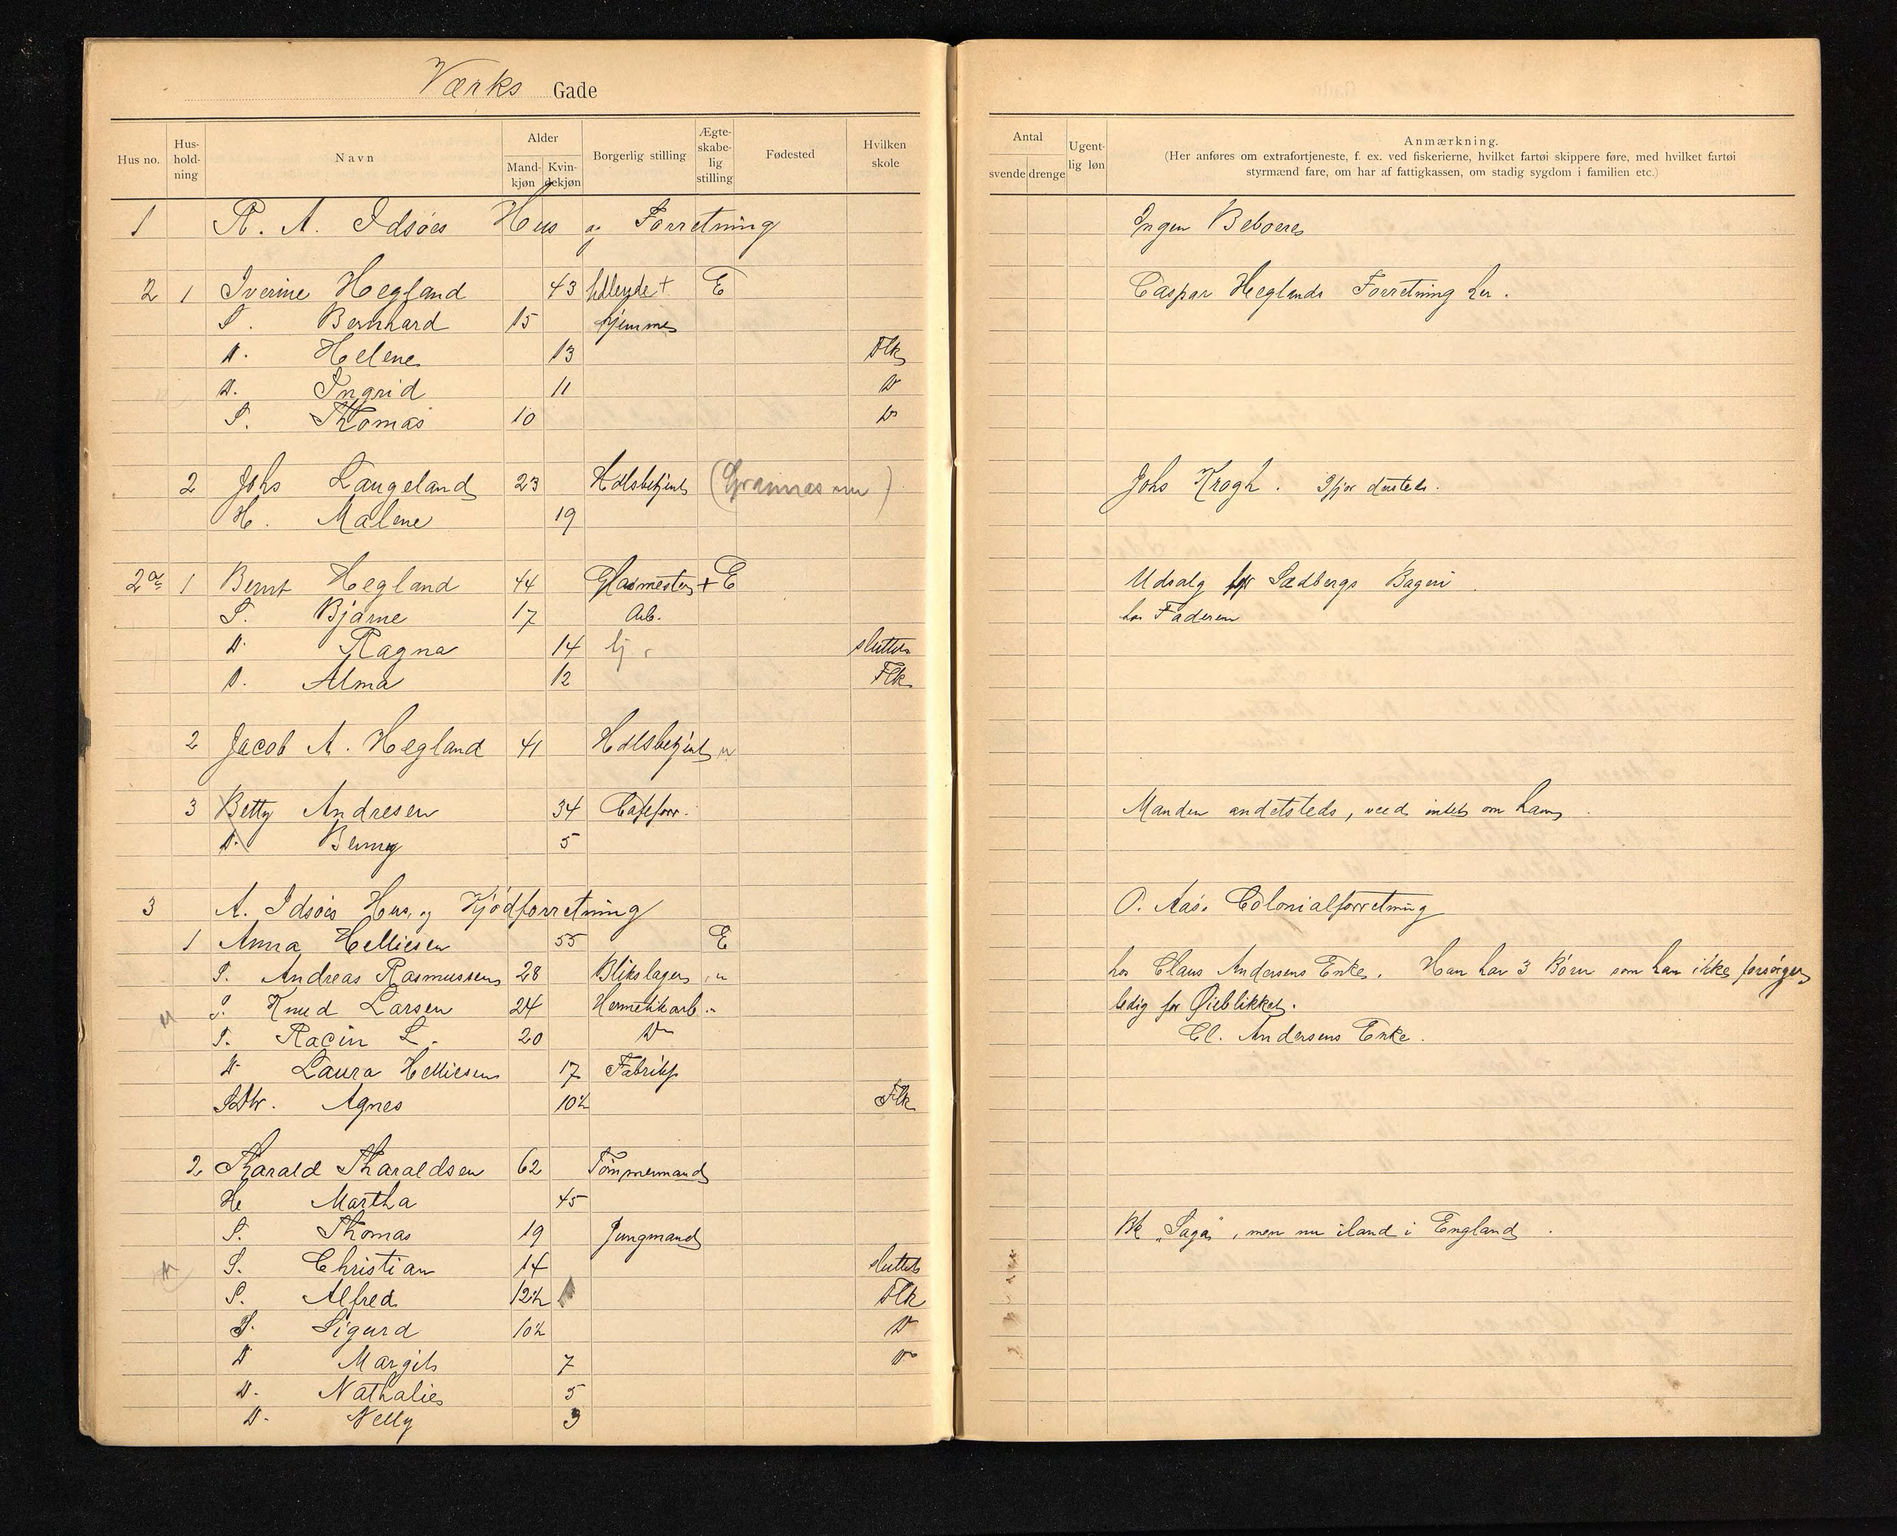 Værks Gade
Hus no. Hus-hold-ning Navn Alder Mand-kjøn Kvin-dekjøn Borgerlig stilling Ægte-skabe-lig stilling Fødested Hvilken skole
Antal svende drenge Ugent-lig løn Anmærkning.
(Her anføres om extrafortjeneste, f. ex. ved fiskerierne, hvilket fartøi skippere føre, med hvilket fartøi
styrmænd fare, om har af fattigkassen, om stadig sygdom i familien etc.)
1 R. A. Idsøes Hus og Forretning Ingen Beboere
2 1 Iverine Hegland 43 E Caspar Heglands Forretning her.
S. Bernhard 15 hjemme
D. Helene 13 Flk
D. Ingrid 11 D
S. Thomas 10 D
2 Johs Langeland 23 Hdlsbetjent Johs Krogh.
H. Malene 19
2a 1 Bernt Hegland 44 Glasmester + E Udsalg for Sædbergs Bageri
S. Bjarne 17 Arb. hos Faderen
D. Ragna 14 hj. sluttet
D. Alma 12 Flk
2 Jacob A. Hegland 41 Hdlsbetjent u
3 Betty Andresen 34 Cafeforr. Manden andetsteds, veed intet om ham
D. Benny 5
3 A. Idsøes Hus og Kjødforretning O. Aas. Colonialforretning
1 Anna Helliesen 55 E
S. Andreas Rasmussen 28 Blikslager u hos Claus Andersens Enke. Han har 3 Børn som han ikke forsørger
S. Knud Larsen 24 Hermetikarb. ledig for Øieblikket.
S. Racin L. 20 D Cl. Andersens Enke.
D Laura Helliesen 17 Fabrikp
Agnes 10½ Flk
2 Tharald Tharaldsen 62 Tømmermand
H Martha 45
S. Thomas 19 Jungmand Bk "Saga", men nu iland i England
S. Christian 14 sluttet
S. Alfred 12½ Flk
S. Sigurd 10½ D
D Margit 7 D
D. Nathalie 5
D. Nelly 3